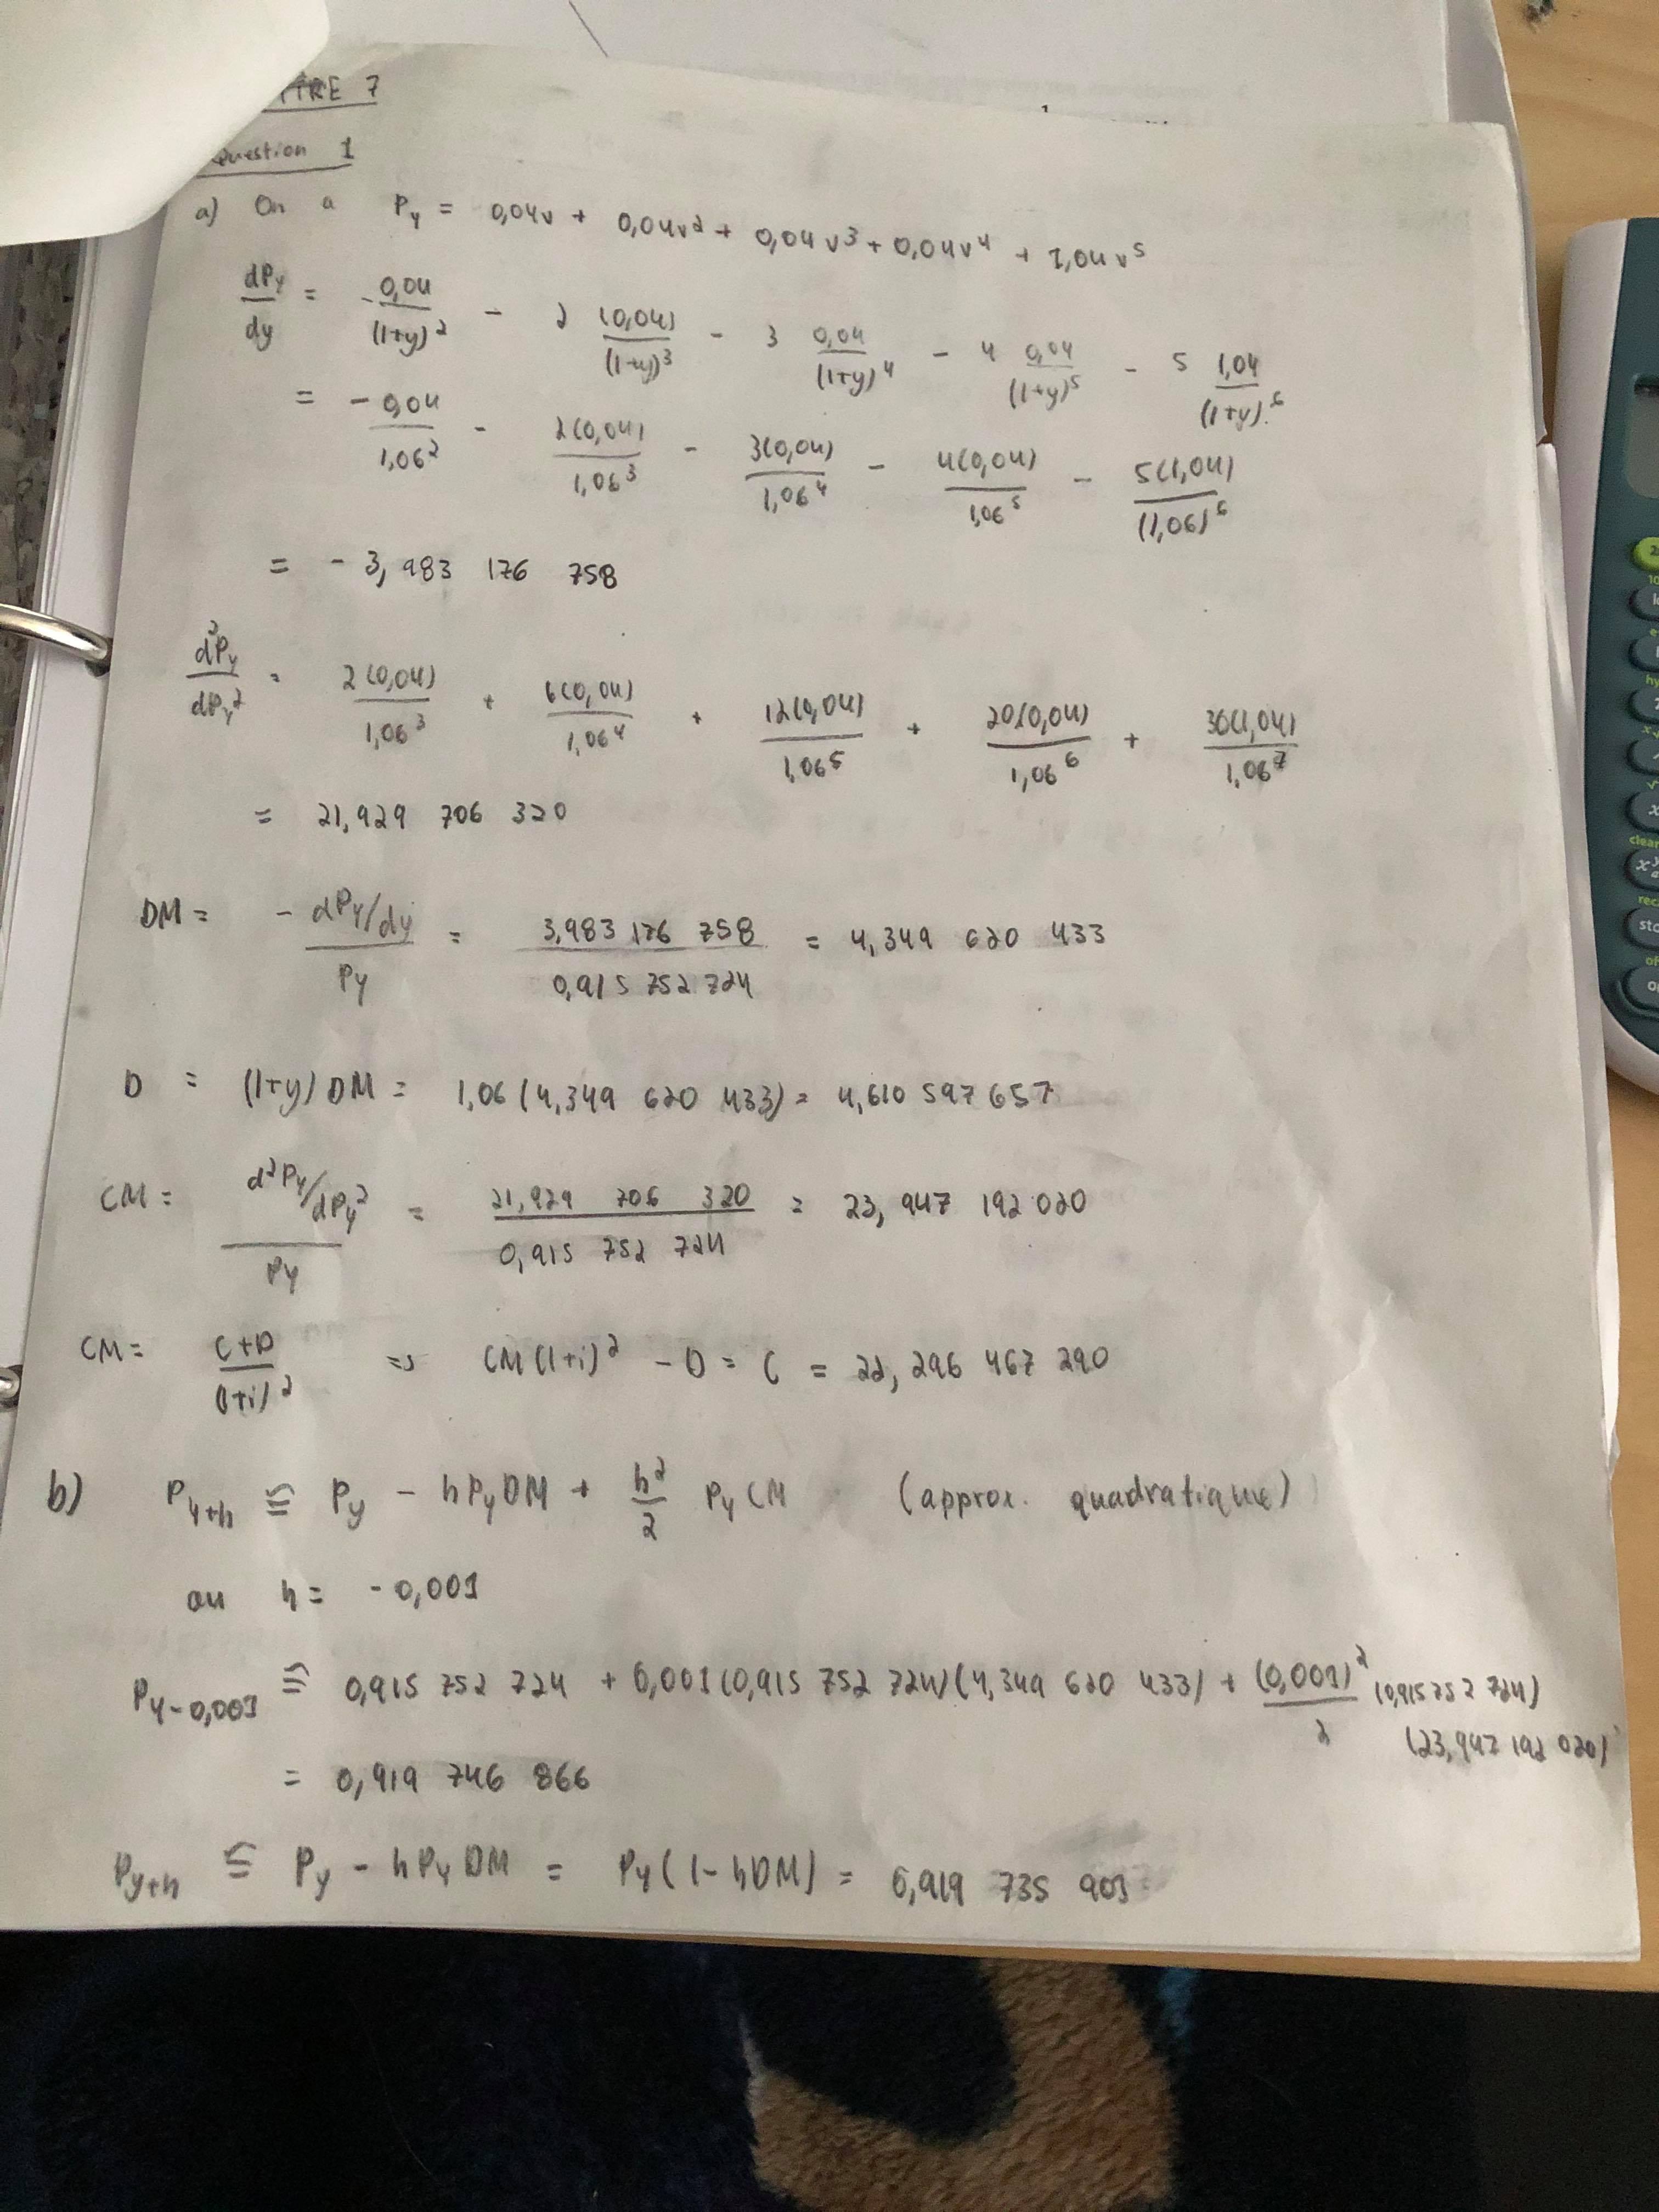 TRE 7
Question 1
a) On a P_y = 0,04v + 0,04v² + 0,04v³ + 0,04v⁴ + 1,04v⁵
dP_y/dy = -0,04/(1+y)² - 2 (0,04)/(1+y)³ - 3 0,04/(1+y)⁴ - 4 0,04/(1+y)⁵ - 5 1,04/(1+y)⁶
= -0,04/1,06² - 2(0,04)/1,06³ - 3(0,04)/1,06⁴ - 4(0,04)/1,06⁵ - 5(1,04)/(1,06)⁶
= -3,983 176 758
d²P_y/dP_y² = 2(0,04)/1,06³ + 6(0,04)/1,06⁴ + 12(0,04)/1,06⁵ + 20(0,04)/1,06⁶ + 30(1,04)/1,06⁷
= 21,929 706 320
DM = - dP_y/dy / P_y = 3,983 176 758 / 0,915 752 724 = 4,349 620 433
D = (1+y) DM = 1,06(4,349 620 433) = 4,610 597 657
CM = d²P_y/dP_y² / P_y = 21,929 706 320 / 0,915 752 724 = 23,947 192 020
CM = C+D/(1+i)² => CM(1+i)² - D = C = 22,296 467 290
b) P_y+h ≅ P_y - hP_yDM + h²/2 P_yCM (approx. quadratique)
ou h = -0,001
P_y-0,001 ≅ 0,915 752 724 + 0,001(0,915 752 724)(4,349 620 433) + (0,001)²/2 (0,915 752 724)
(23,947 192 020)
= 0,919 746 866
P_y+h ≅ P_y - hP_yDM = P_y(1-hDM) = 0,919 735 901